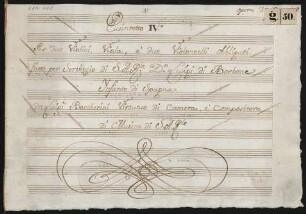 Quintetto IV.º
A due Violini, Viola, e due Violoncelli obligati
fatti per Servigio di S.A.R. Dn. Luigi di Borbone
Infante di Spagna
Da Luigi Boccherini Virtuoso di Camera, e Compositore
di Musica di S.A.R.
g. 50.